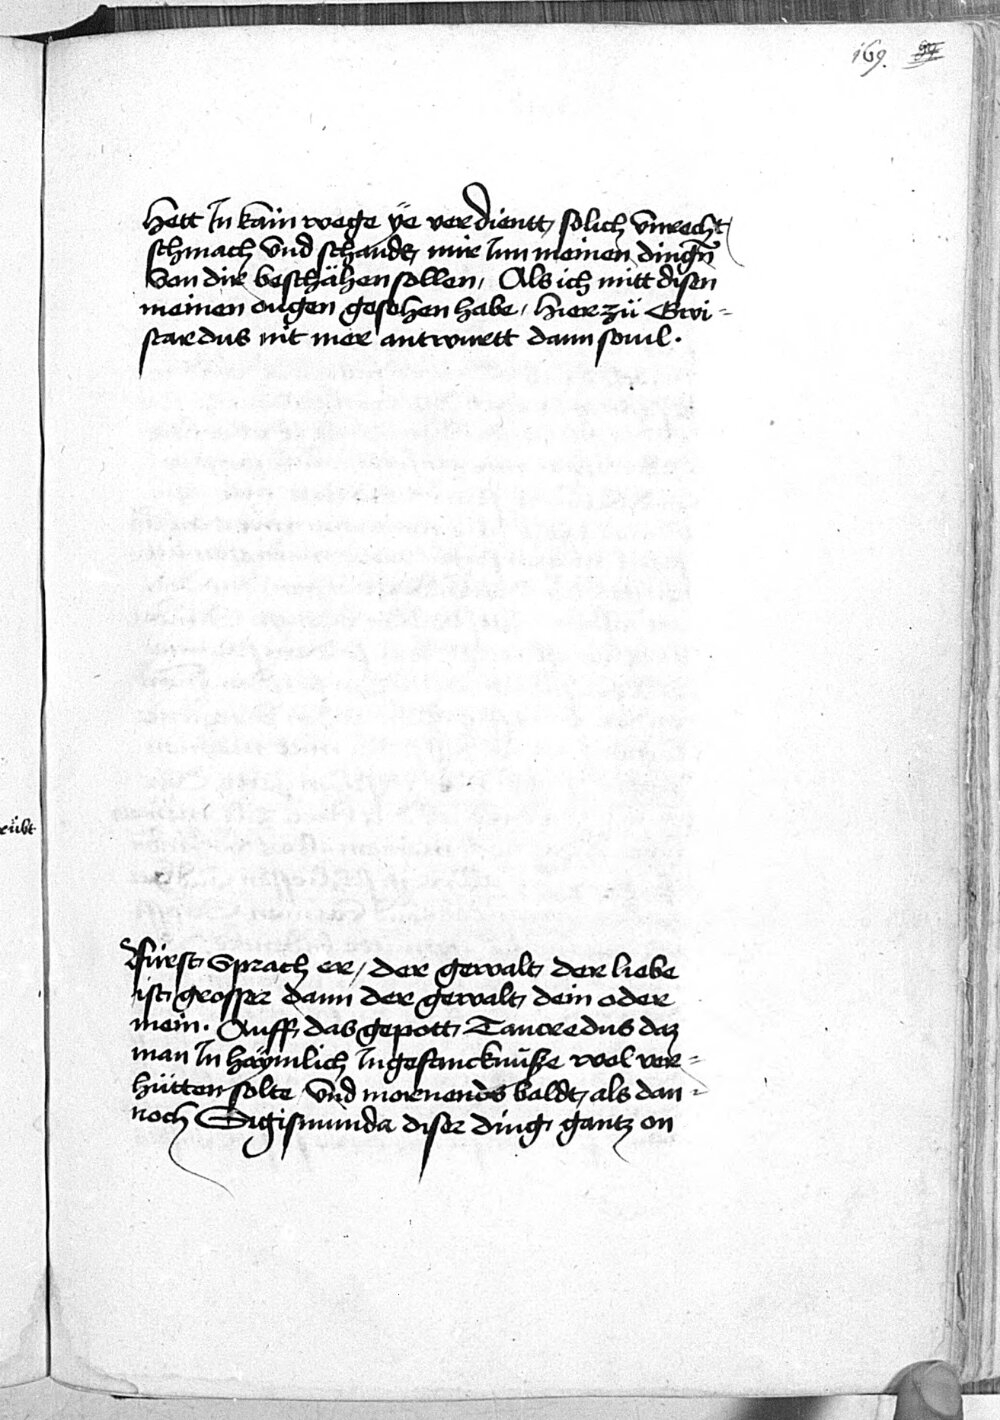 169.
Hett In kain wege ÿe verdientt, solich vnrecht,
schmach vnd schande, mir Inn meinen dingñ
von dir beschähen sollen, Als ich mitt disen
meinen ougen gesehen habe, hierzů Gwi=
scardus nit mer antwurtt dann souil.
rübt
Fürst, Sprach er, der gewalt, der liebe
ist, grosser dann der gewalt, dein oder
mein. Auff, das gepott, Tancredus daz
man In haÿmlich In gefancknüße wol ver=
hütten solte, vnd mornends baldt, als dan=
noch Sigismunda diser ding, gantz on